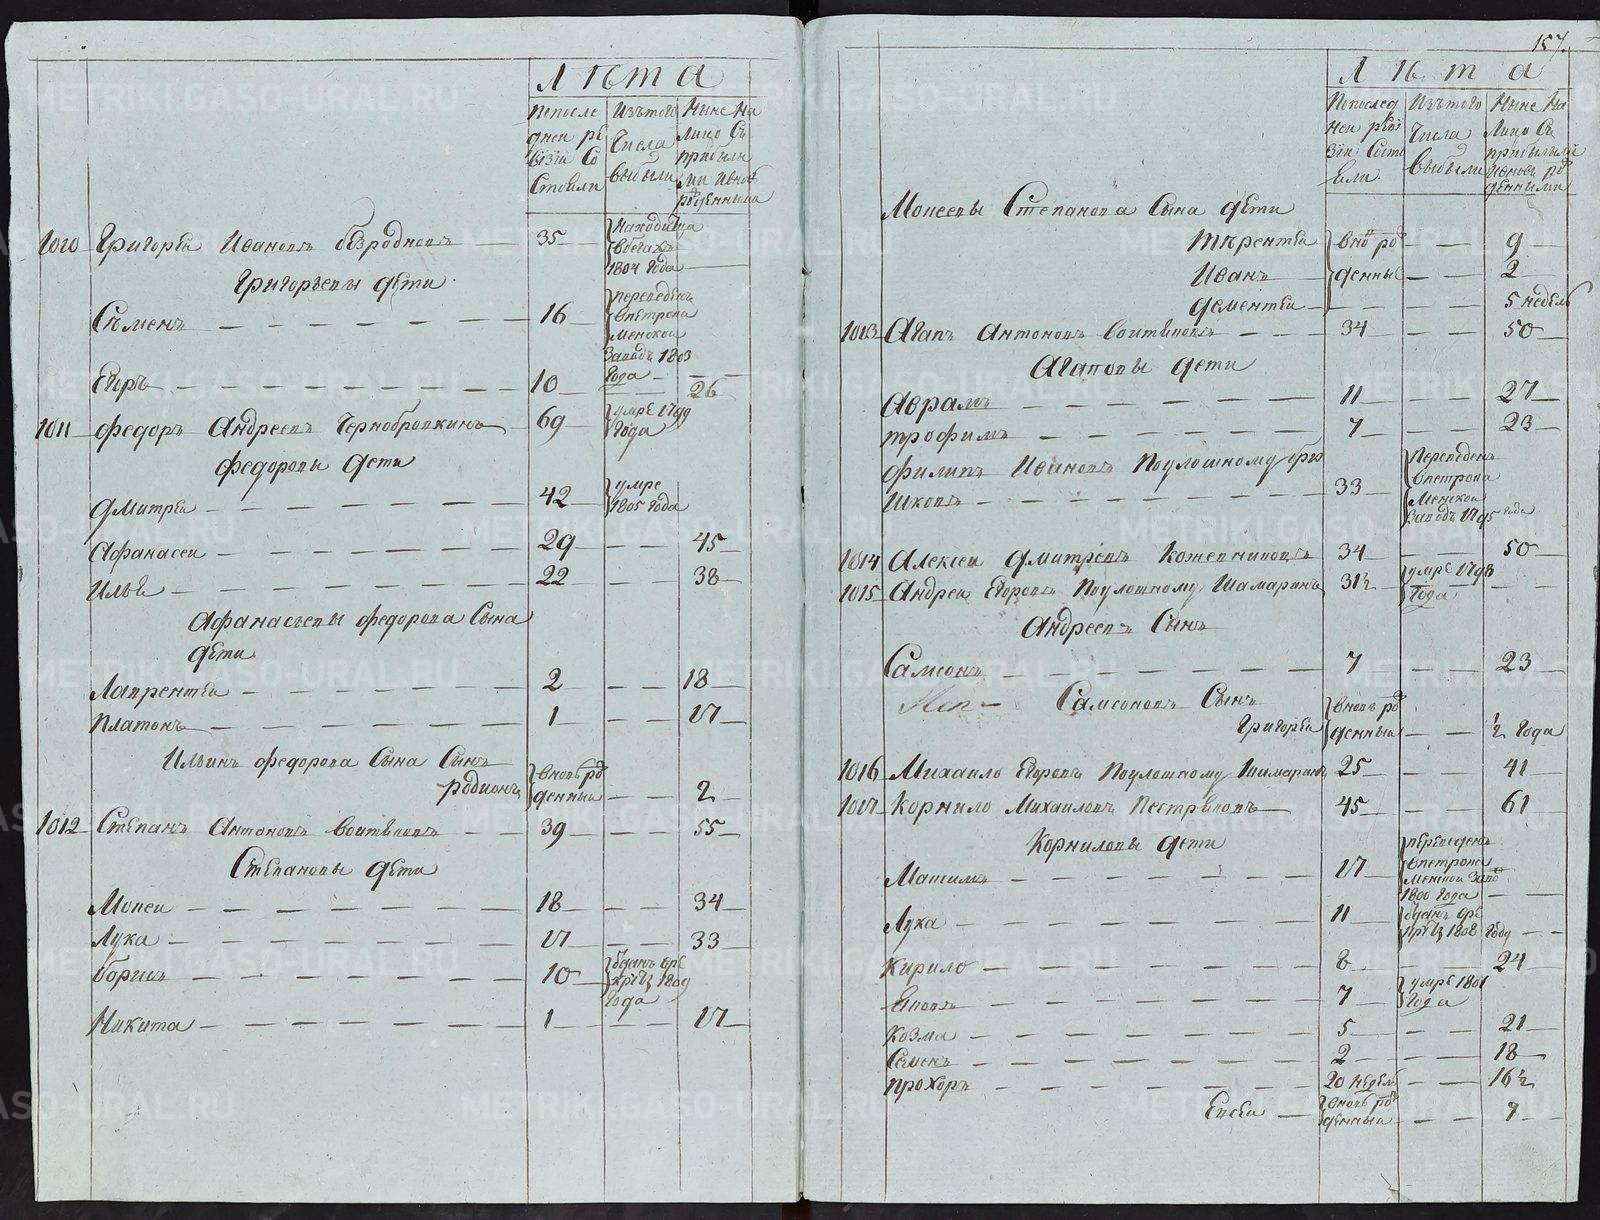 Лѣта
Попосле Изътого Ныне На
дней ре Числа Лицо Съ
визiи Со выбыли прибылы
Стояли ми ивновь
рожденными
1010 Григореи Ивановъ безродновъ — 35 находица
вбегахъ
1804 года —
Григорьевы дети
Съменъ — 16 переведенъ
впетрока
менскои
Заводъ 1803
года —
Егоръ — 10 — 26
1011 федоръ Андреевъ Чернобровкинъ — 69 умре 1799
года
федоровы дети
дмитреи — 42 умре
1805 года
Афанасеи — 29 — 45
Илья — 22 — 38
Афанасьевы федорова Сына
дети
Лаврентеи — 2 — 18
Платонъ — 1 — 17
Ильинъ федорова Сына Сынъ
родионъ вновь ро
жденныи — 2
1012 Степанъ Антоновъ — 39 — 55
Степановы дети
Моисеи — 18 — 34
Лука — 17 — 33
борисъ — 10 отданъ вре
круты 1809
года
Никита — 1 — 17
157.
Лѣта
Попослед Изътого Ныне На
ней реви Числа Лицо Съ
зiи Состо выбыли прибылыми
яли ивновь ро
жденными
Моисеевы Степанова Сына дети
терентеи вно ро — 9
Иванъ жденные — 2
дементеи — 5 недель
1013 Агапъ Антоновъ — 34 — 50
Агаповы дети
Аврамъ — 11 — 27
трофимъ — 7 — 23
филипъ Ивановъ Поулошному
— 33 Переведенъ
впетрока
Менскои
Заводъ 1795 года
1014 Алексеи дмитревъ Кожевниковъ 34 — 50
1015 Андреи Егоровъ Поулошному Шамаринъ 31½ умре 1798
года —
Андреевъ Сынъ
Самсонъ — 7 — 23
Самсоновъ Сынъ
Григореи вновь ро
жденныи — ½ года
1016 Михаило Егоровъ Поулошному Шамаринъ 25 — 41
1017 Корнило Михаиловъ Пестряковъ — 45 — 61
Корниловы дети
Максимъ — 17 переведенъ
впетрока
менскои заво
1800 года —
Лука — 11 отданъ вре
круты 1808 году —
Кирило — 8 — 24
— 7 умре 1801
года —
Козма — 5 — 21
Семенъ — 2 — 18
прохоръ — 20 недель — 16½
Евсеи — вновь ро
жденныи — 7